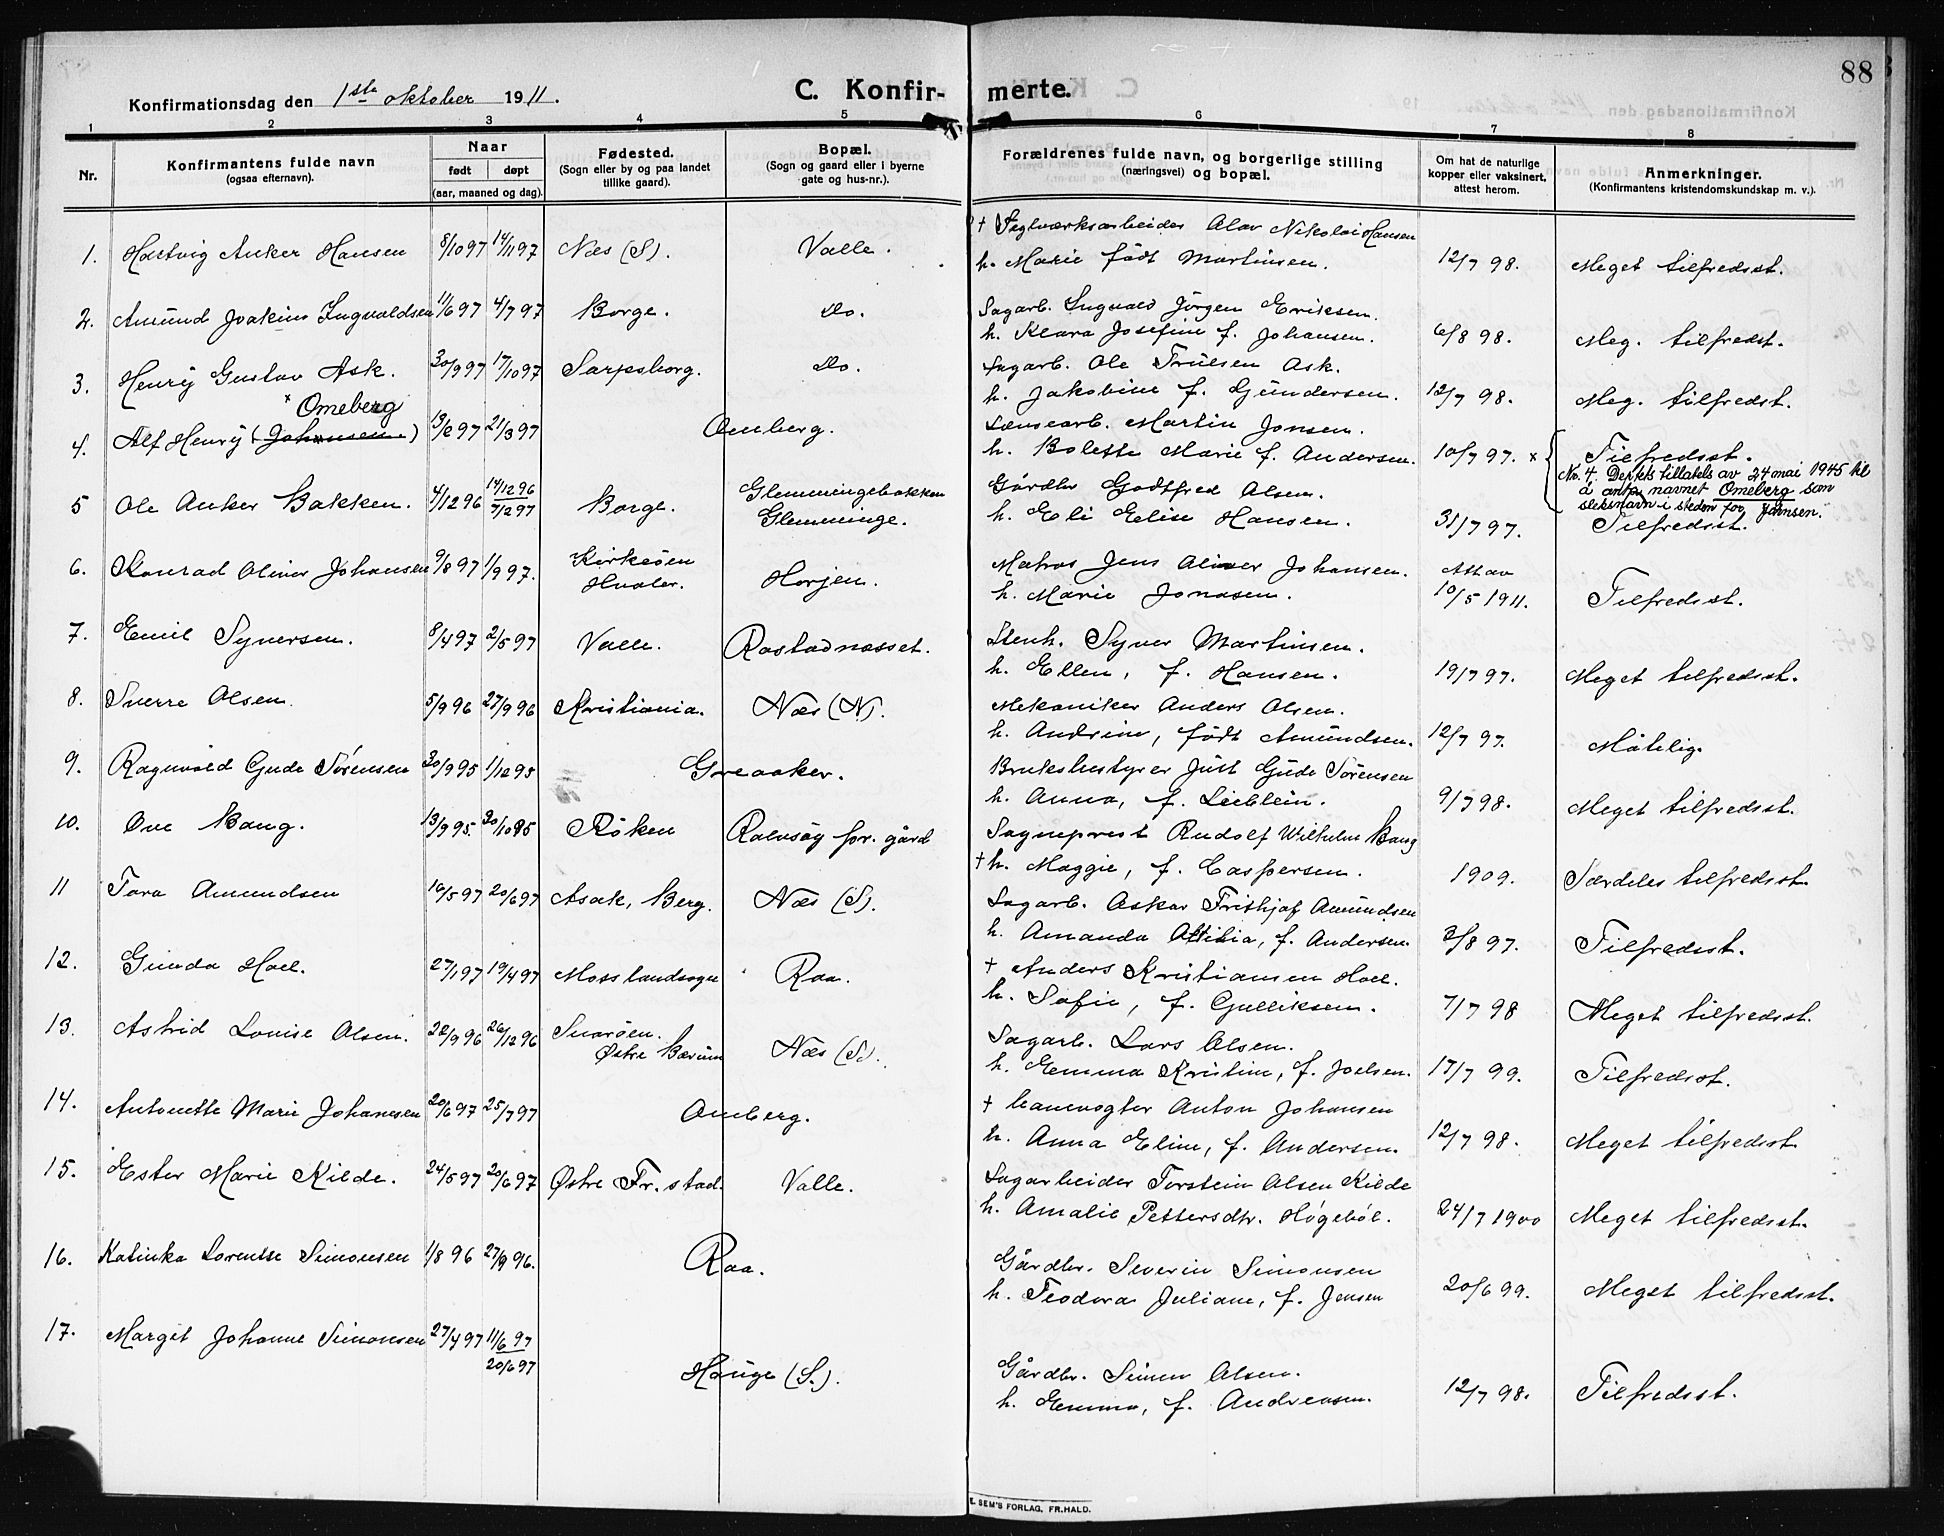 88
Konfirmationsdag den 1ste oktober 1911.
C. Konfir- merte.
1 2 3 4 5 6 7 8
Nr.
Konfirmantens fulde navn
(ogsaa efternavn).
Naar
født døpt
(aar, maaned og dag).
Fødested.
(Sogn eller by og paa landet
tillike gaard).
Bopæl.
(Sogn og gaard eller i byerne
gate og hus-nr.).
Forældrenes fulde navn, og borgerlige stilling
(næringsvei) og bopæl.
Om hat de naturlige
kopper eller vaksinert,
attest herom.
Anmerkninger.
(Konfirmantens kristendomskundskap m. v.).
1. Hartvig Anker Hansen 8/10 97 14/11 97 Næs (S). Valle.
† Teglværksarbeider Olav Nikolai Hansen
h. Marie født Martinsen. 12/7 98. Meget tilfredsst.
2. Amund Joakim Ingvaldsen 11/6 97 4/7 97 Borge. do.
Sagarb. Ingvald Jörgen Eriksen.
h. Klara Josefine f. Johansen. 6/8 98. Meg. tilfredst.
3. Henry Gustav Ask. 30/9 97 17/10 97 Sarpsborg. do.
Sagarb. Ole Trulsen Ask.
h. Jakobine f. Gundersen. 12/7 98. Meg. tilfredst.
× Omeberg
4. Alf Henry (Johansen) 13/2 97 21/3 97 Omberg.
Lænsearb. Martin Jonsen.
h. Bolette Marie f. Andersen. 10/7 97. × Tilfredsst.
No. 4. Dep.ts tillatels av 24 mai 1945 til
å anta navnet Omeberg som
sleksnavn i steden for Johnsen.
5 Ole Anker Bakken. 4/12 96 14/12 96 7/2 97 Borge. Glemmingebakken
Glemminge.
Gårdbr Godtfred Olsen.
h. Eli Elise Hansen. 31/7 97. Tilfredsst.
6. Konrad Oliver Johansen 9/8 97 1/9 97. Kirkeöen
Hvaler. Horjen.
Matros Jens Oliver Johansen.
h. Marie Jonasen. Att av
10/5 1911. Tilfredsst.
7. Emil Synersen. 8/4 97 2/5 97 Valle. Rostadnæsset.
Stenh. Syner Martinsen.
h. Ellen, f. Hansen. 19/7 97. Meget tilfredsst.
8. Sverre Olsen. 5/9 96 27/9 96 Kristiania. Næs (N).
Mekaniker Anders Olsen.
h. Andrine, født Amundsen. 12/7 97. Måtelig.
9. Ragnvald Gude Sörensen 30/9 95 1/12 95 Greaaker.
Bruksbestyrer Just Gude Sörensen
h. Anna, f. Lieblein. 9/7 98. Meget tilfredsst.
10. Ove Bang. 13/9 95. 20/10 95 Röken Rolvsöy pr. gård
Sogneprest Rudolf Wilhelm Bang
† h. Maggie, f. Caspersen. 1909. Særdeles tilfredsst.
11 Tora Amundsen 10/5 97 20/6 97 Asak, Berg. Næs (S).
Sagarb. Oskar Frithjof Amundsen
h. Amanda Ottilia, f. Andersen. 3/8 97. Tilfredsst.
12. Gunda Hoel. 27/1 97 19/4 97 Moss landsogn Raa.
† Anders Kristiansen Hoel.
h. Sofie, f. Gulliksen. 7/7 98 Meget tilfredsst.
13. Astrid Louise Olsen. 22/9 96 26/12 96 Snaröen.
Østre Bærum Næs (S.).
Sagarb. Lars Olsen.
h. Emma Kristine, f. Joelsen. 17/7 99. Tilfredsst.
14. Antonette Marie Johansen 20/6 97 25/7 97 Omberg.
† banevogter Anton Johansen
h. Anna Eline, f. Andersen. 12/7 98. Meget tilfredsst.
15. Ester Marie Kilde. 24/5 97 20/6 97 Østre Fr.stad. Valle.
Sagarbeider Torstein Olsen Kilde
h. Amalie Pettersdtr. Högeböl. 24/7 1900 Meget tilfredsst.
16. Katinka Lorentse Simonsen 1/8 96 27/9 96. Raa.
Gårdbr. Severin Simonsen
h. Teodora Juliane, f. Jensen 20/6 99. Meget tilfredsst.
17. Margit Johanne Simonsen 27/4 97 11/6 97 20/6 97 Hauge (S.).
Gårdbr. Simen Olsen.
h. Emma, f. Andreasen. 12/7 98. Tilfredsst.
E. SEM'S FORLAG, FR.HALD.